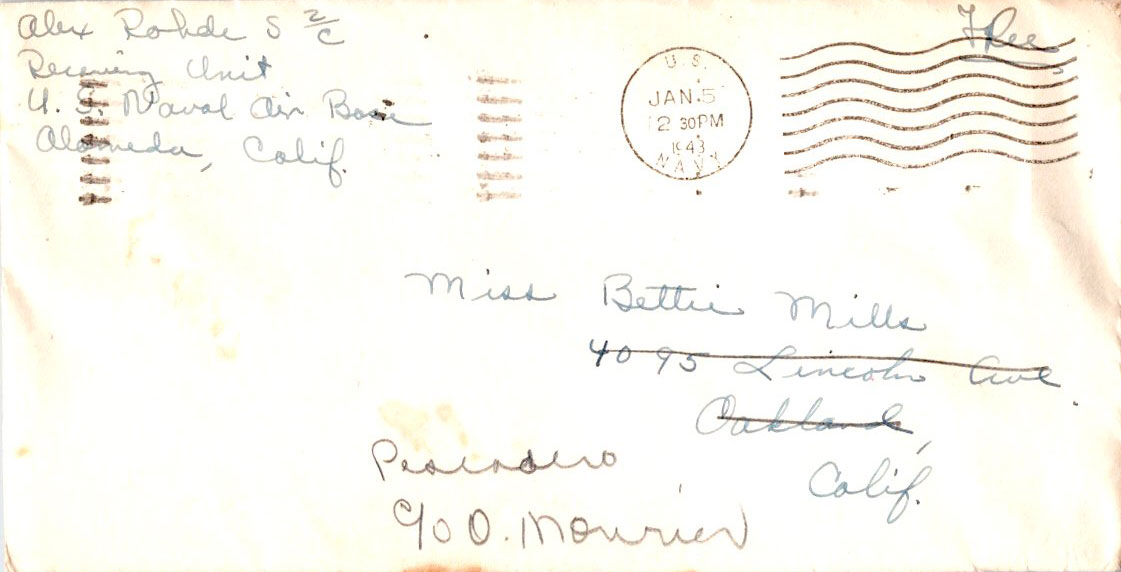 Alex Rohde S 2/c
Receiving Unit
U. S. Naval Air Base
Alameda, Calif.
Free
U.S.
JAN 5
2 30 PM
1943
NAVY
Miss Bettie Mills
4095 Lincoln Ave
Oakland,
Calif.
Pescadero
c/o O. Mourier